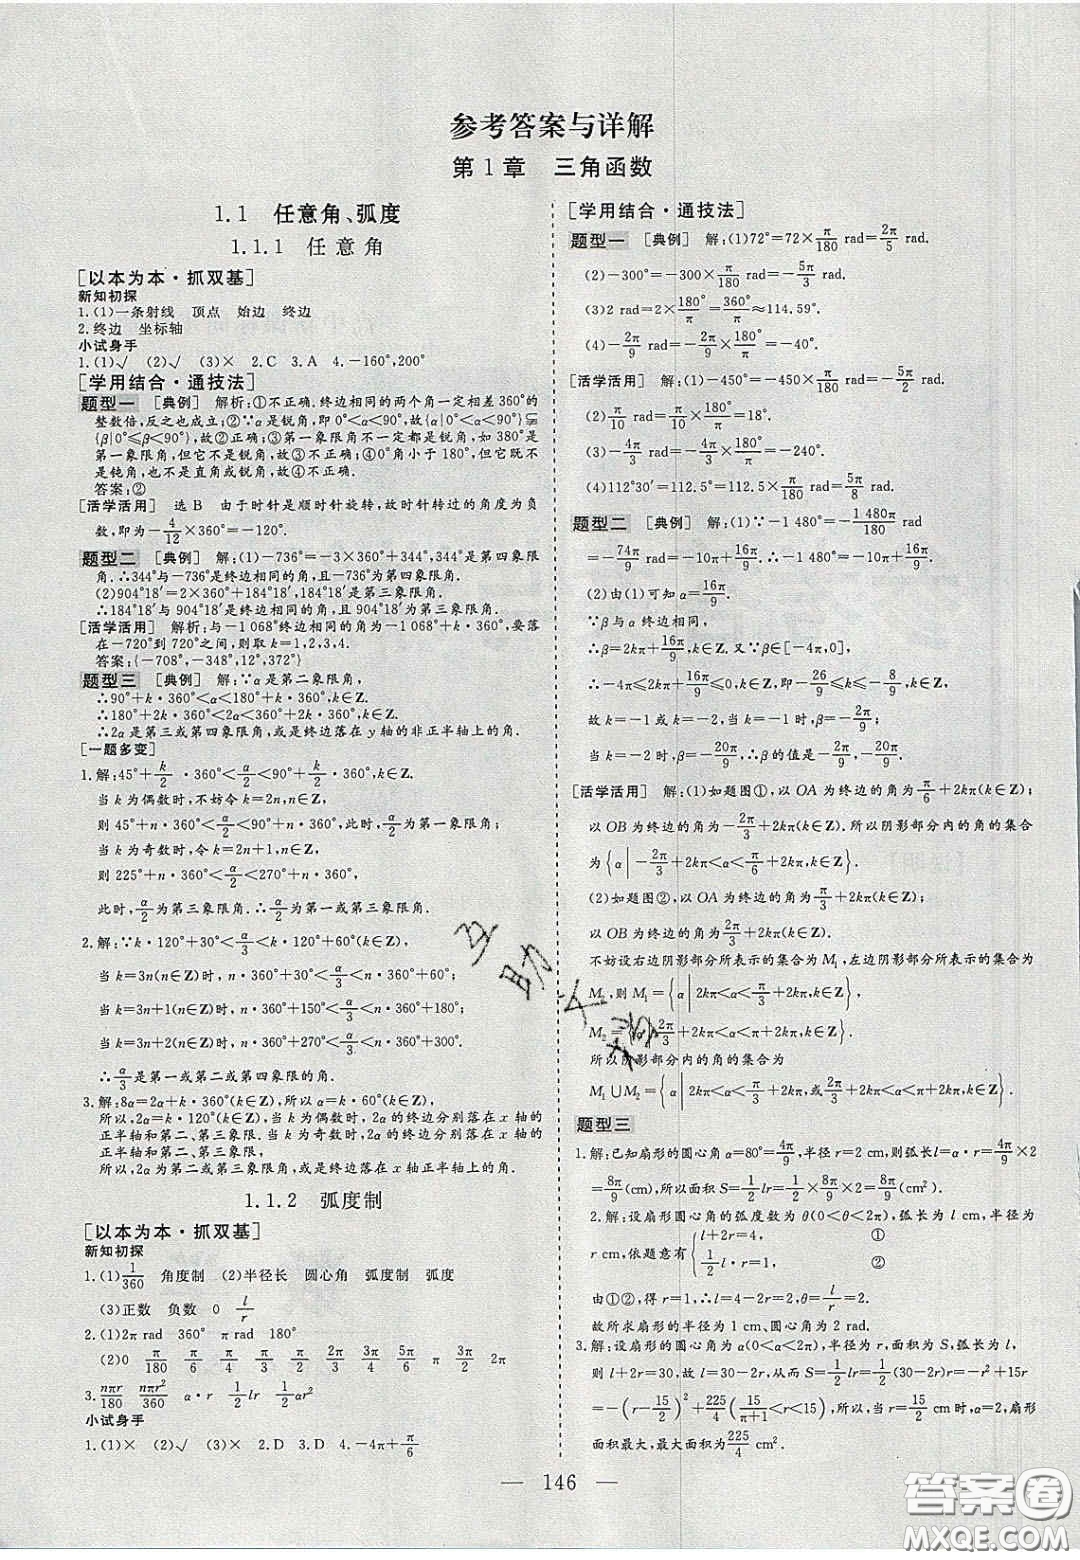 参考答案与详解
第1章　三角函数
1.1　任意角、弧度
1.1.1　任意角
[以本为本·抓双基]
新知初探
1.(1)一条射线　顶点　始边　终边
2.终边　坐标轴
小试身手
1.(1)√　(2)√　(3)×　2.C　3.A　4.-160°,200°
[学用结合·通技法]
题型一　[典例]　解析:①不正确.终边相同的两个角一定相差360°的
整数倍,反之也成立;②∵α是锐角,即0°<α<90°,故{α|0°<α<90°}⫋
{β|0°≤β<90°},故②正确;③第一象限角不一定都是锐角,如380°是
第一象限角,但它不是锐角,故③不正确;④0°角小于180°,但它既不
是钝角,也不是直角或锐角,故④不正确.
答案:②
[活学活用]　选B　由于时针是顺时针旋转,故时针转过的角度为负
数,即为-4/12×360°=-120°.
题型二　[典例]　解:(1)-736°=-3×360°+344°,344°是第四象限
角.∴344°与-736°是终边相同的角,且-736°为第四象限角.
(2)904°18′=2×360°+184°18′,184°18′是第三象限角.
∴184°18′与904°18′是终边相同的角,且904°18′为第三象限角.
[活学活用]　解析:与-1 068°终边相同的角为-1 068°+k·360°,要落
在-720°到720°之间,则取k=1,2,3,4.
答案:{-708°,-348°,12°,372°}
题型三　[典例]　解:∵α是第二象限角,
∴90°+k·360°<α<180°+k·360°,k∈Z.
∴180°+2k·360°<2α<360°+2k·360°,k∈Z.
∴2α是第三或第四象限角,或是终边落在y轴的非正半轴上的角.
[一题多变]
1.解:45°+k/2·360°<α/2<90°+k/2·360°(k∈Z).
当k为偶数时,不妨令k=2n,n∈Z,
则45°+n·360°<α/2<90°+n·360°,此时,α/2为第一象限角;
当k为奇数时,令k=2n+1,n∈Z,
则225°+n·360°<α/2<270°+n·360°,
此时,α/2为第三象限角.∴α/2为第一或第三象限角.
2.解:∵k·120°+30°<α/3<k·120°+60°(k∈Z),
当k=3n(n∈Z)时,n·360°+30°<α/3<n·360°+60°;
当k=3n+1(n∈Z)时,n·360°+150°<α/3<n·360°+180°;
当k=3n+2(n∈Z)时,n·360°+270°<α/3<n·360°+300°.
∴α/3是第一或第二或第四象限的角.
3.解:8α=2α+k·360°(k∈Z),
所以,2α=k·120°(k∈Z),当k为偶数时,2α的终边分别落在x轴的
正半轴和第二、第三象限.当k为奇数时,2α的终边分别落在x轴的
正半轴和第二、第三象限,
所以,2α为第二或第三象限的角或终边落在x轴正半轴上的角.
1.1.2　弧度制
[以本为本·抓双基]
新知初探
1.(1)1/360　角度制　(2)半径长　圆心角　弧度制　弧度
(3)正数　负数　0　l/r
2.(1)2π rad　360°　π rad　180°
(2)0　π/180　π/6　π/4　π/3　π/2　2π/3　3π/4　5π/6　π　3π/2　2π
3.nπr/180　nπr²/360　α·r　1/2 lr　1/2 αr²
小试身手
1.(1)×　(2)√　(3)×　2.D　3.D　4.-4π+π/6
[学用结合·通技法]
题型一　[典例]　解:(1)72°=72×π/180 rad=2π/5 rad.
(2)-300°=-300×π/180 rad=-5π/3 rad.
(3)2 rad=2×180°/π=360°/π≈114.59°.
(4)-2π/9 rad=-2π/9×180°/π=-40°.
[活学活用]　解:(1)-450°=-450×π/180 rad=-5π/2 rad.
(2)π/10 rad=π/10×180°/π=18°.
(3)-4π/3 rad=-4π/3×180°/π=-240°.
(4)112°30′=112.5°=112.5×π/180 rad=5π/8 rad.
题型二　[典例]　解:(1)∵-1 480°=-1 480π/180 rad
=-74π/9 rad=-10π+16π/9.∴-1 480°=-10π+16π/9.
(2)由(1)可知α=16π/9.
∵β与α终边相同,
∴β=2kπ+16π/9,k∈Z.又∵β∈[-4π,0],
∴-4π≤2kπ+16π/9≤0,k∈Z,即-26/9≤k≤-8/9,k∈Z.
故k=-1或k=-2,当k=-1时,β=-2π/9;
当k=-2时,β=-20π/9,∴β的值是-2π/9,-20π/9.
[活学活用]　解:(1)如题图①,以OA为终边的角为π/6+2kπ(k∈Z);
以OB为终边的角为-2π/3+2kπ(k∈Z).所以阴影部分内的角的集合
为{α|-2π/3+2kπ<α<π/6+2kπ,k∈Z}.
(2)如题图②,以OA为终边的角为π/3+2kπ(k∈Z);
以OB为终边的角为2π/3+2kπ(k∈Z).
不妨设右边阴影部分所表示的集合为M₁,左边阴影部分所表示的集合为
M₂,则M₁={α|2kπ<α<π/3+2kπ,k∈Z},
M₂={α|2π/3+2kπ<α<π+2kπ,k∈Z}.
所以阴影部分内的角的集合为
M₁∪M₂={α|2kπ<α<π/3+2kπ,或2π/3+2kπ<α<π+2kπ,k∈Z}.
题型三
1.解:已知扇形的圆心角α=80°=4π/9,半径r=2 cm,则弧长l=α·r=4π/9×2
=8π/9(cm),所以面积S=1/2 lr=1/2×8π/9×2=8π/9(cm²).
2.解:设扇形圆心角的弧度数为θ(0<θ<2π),弧长为l cm,半径为
r cm,依题意有{l+2r=4,　①　1/2 l·r=1.　②
由①②,得r=1,∴l=4-2r=2,∴θ=l/r=2.
故所求扇形的半径为1 cm、圆心角为2 rad.
3.解:设扇形的圆心角为α(0<α<2π),半径为r,面积为S,弧长为l,
则l+2r=30,故l=30-2r,从而S=1/2 lr=1/2(30-2r)r=-r²+15r
=-(r-15/2)²+225/4(15/(π+1)<r<15),所以,当r=15/2 cm时,α=2,扇形
面积最大,最大面积为225/4 cm².
互助文档
— 146 —
答案圈
MXQE.COM